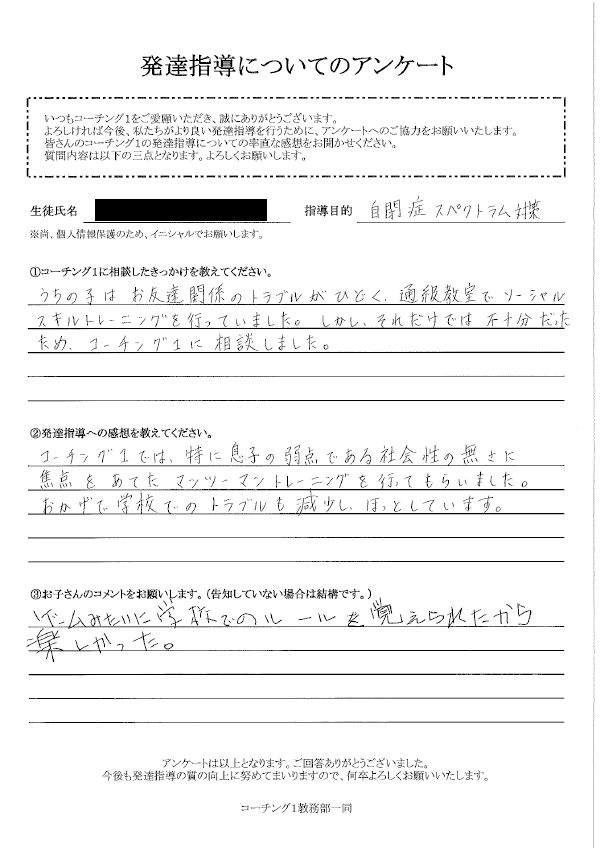 発達指導についてのアンケート
いつもコーチング1をご愛願いただき、誠にありがとうございます。
よろしければ今後、私たちがより良い発達指導を行うために、アンケートへのご協力をお願いいたします。
皆さんのコーチング1の発達指導についての率直な感想をお聞かせください。
質問内容は以下の三点となります。よろしくお願いします。
生徒氏名 指導目的 自閉症スペクトラム対策
※尚、個人情報保護のため、イニシャルでお願いします。
①コーチング1に相談したきっかけを教えてください。
うちの子はお友達関係のトラブルがひどく、通級教室でソーシャル
スキルトレーニングを行っていました。しかし、それだけでは不十分だった
ため、コーチング1に相談しました。
②発達指導への感想を教えてください。
コーチング1では、特に息子の弱点である社会性の無さに
焦点をあてたマンツーマントレーニングを行ってもらいました。
おかげで学校でのトラブルも減少し、ほっとしています。
③お子さんのコメントをお願いします。（告知していない場合は結構です。）
ゲームみたいに学校でのルールを覚えられたから
楽しかった。
アンケートは以上となります。ご回答ありがとうございました。
今後も発達指導の質の向上に努めてまいりますので、何卒よろしくお願いいたします。
コーチング1教務部一同